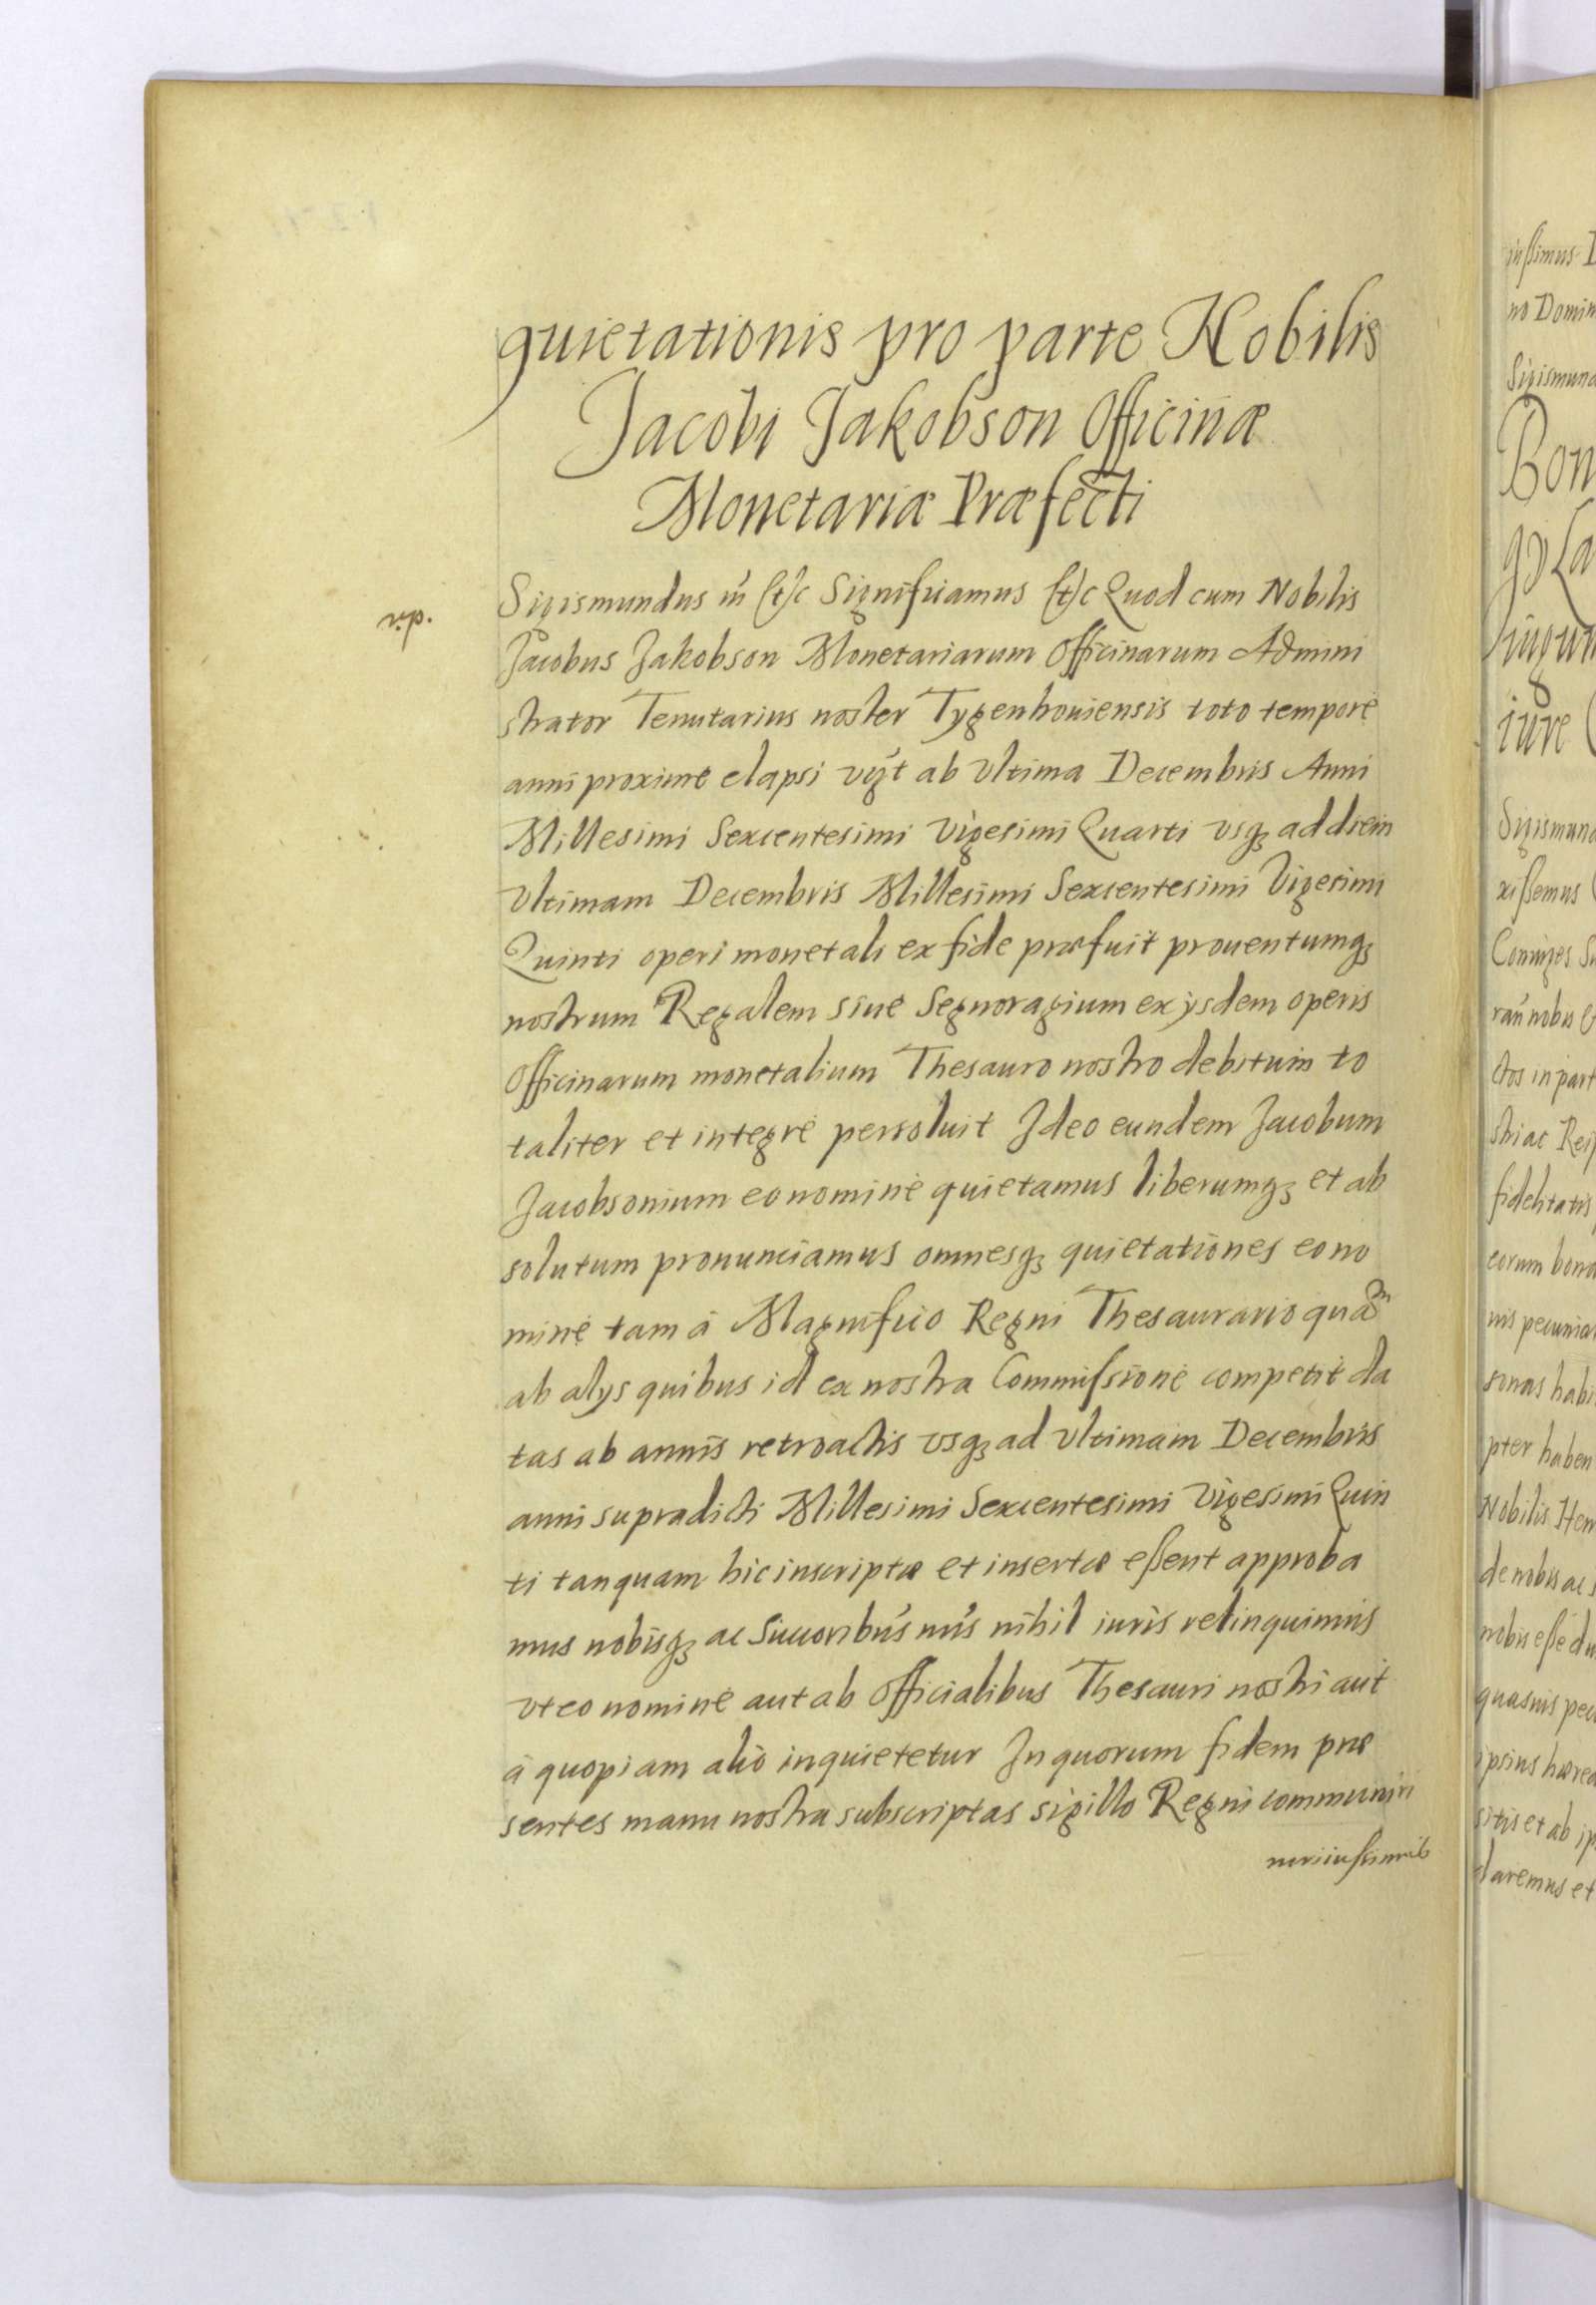 quietationis pro parte Nobilis
Jacobi Jakobson Officinæ
Monetariæ Præfecti
Sigismundus ııı́ &c Significamus &c Quod cum Nobilis
Jacobus Jakobson Monetariarum Officinarum Admini
strator Tenutarius noster Tygenhouiensis toto tempore
anni proxime elapsi vȷ́t ab Vltima Decembris Anni
Millesimi Sexcentesimi Vigesimi Quarti vsqꝫ ad diem
Vltimam Decembris Millesimi Sexcentesimi Vigesimi
Quinti operi monetali ex fide præfuit prouentumqꝫ
nostrum Regalem siue Segnoragium ex ijsdem operis
Officinarum monetalium Thesauro nostro debitum to
taliter et integrè persoluit Ideo eundem Jacobum
Jacobsonium eo nominè quietamus liberumqꝫ et ab
solutum pronunciamus omnesqꝫ quietationes eo no
minè tam à Magnifico Regni Thesaurario quam
ab alÿs quibus id ex nostra Commissionè competit da
tas ab annis retroactis vsqꝫ ad Vltimam Decembris
anni supradicti Millesimi Sexcentesimi Vigesimi Quin
ti tanquam hic inscriptæ et insertæ eßent approba
mus nobisqꝫ ac Succoribus nris nihil iuris relinquimus
vt eo nominè aut ab Officialibus Thesauri nostri aut
à quopiam alio inquietetur In quorum fidem præ
sentes manu nostra subscriptas sigillo Regni communiri
dic.
inßimus
no Domin
Sigismund
Bon
iure
Sigismund
xißemus
Coniuges Su
rań nobis &
ctos in part
stri ac Reip
fidelitatis
eorum bona
nis pecunia
sonas habi
pter haben
Nobilis Hen
de nobis ac s
nobis eße du
quasuis pecu
ipsius hæred
sitis et ab ip
laremus et